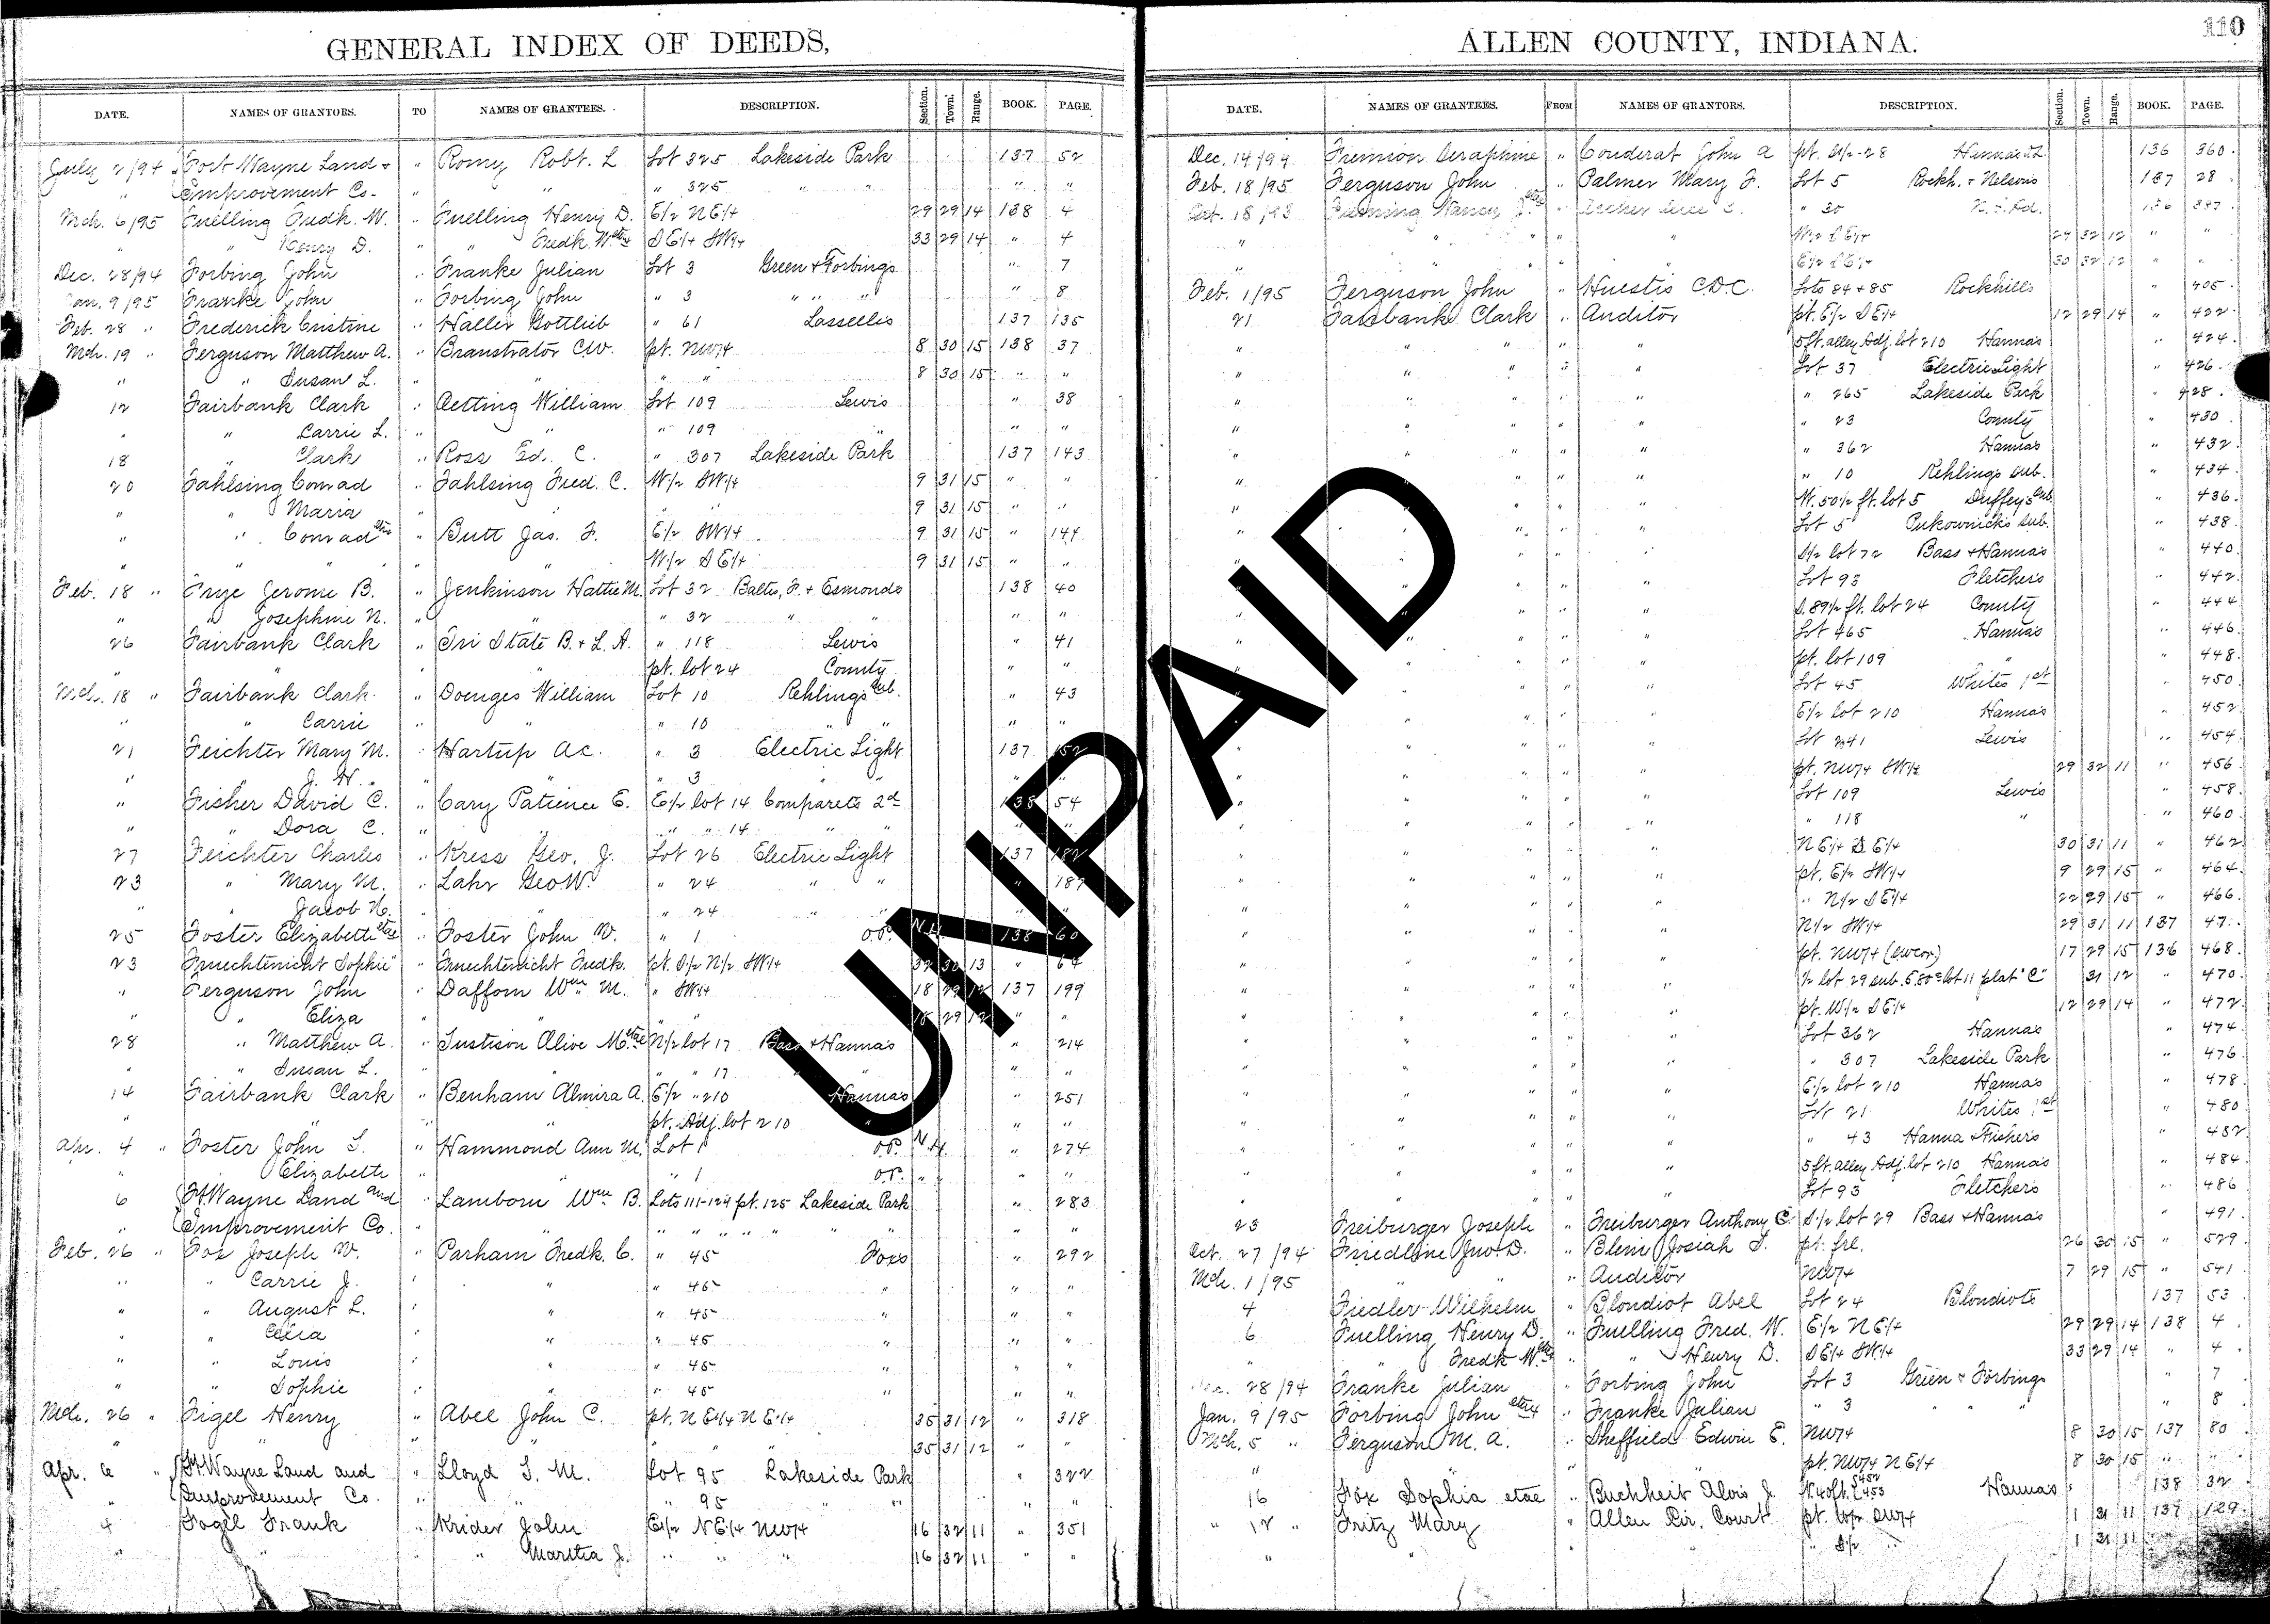 110
GENERAL INDEX OF DEEDS,
DATE. NAMES OF GRANTORS. TO NAMES OF GRANTEES. DESCRIPTION. Section. Town. Range. BOOK. PAGE.
July 2/94 Fort Wayne Land & " Romy Robt. L Lot 325 Lakeside Park 137 52
" Improvement Co. " " " 325 " " " "
Mch. 6/95 Fuelling Fredk. W. " Fuelling Henry D. E1/2 NE1/4 29 29 14 138 4
" " Henry D. " " Fredk. W. SE1/4 SW1/4 33 29 14 " 4
Dec. 28/94 Forbing John " Franke Julian Lot 3 Green & Forbings " 7
Jan. 9/95 Franke John " Forbing John " 3 " " " " 8
Feb. 28 " Frederick Cristine " Haller Gottlieb " 61 Lassellis 137 135
Mch. 19 " Ferguson Matthew A. " Branstrator C.W. pt. NW1/4 8 30 15 138 37
" " Susan L. " " " " 8 30 15 " "
12 Fairbank Clark " Oetting William Lot 109 Lewis " 38
" " Carrie L. " " " 109 " " "
18 " Clark " Ross Ed. C. " 307 Lakeside Park 137 143
20 Fahlsing Conrad " Fahlsing Fred. C. W1/2 SW1/4 9 31 15 " "
" " Maria " " " " 9 31 15 " "
" " Conrad " Butt Jas. F. E1/2 SW1/4 9 31 15 " 144
" " " " " W1/2 SE1/4 9 31 15 " "
Feb. 18 " Frye Jerome B. " Jenkinson Hattie M. Lot 32 Baltes, F. & Esmonds 138 40
" " Josephine N. " " " 32 " " " "
26 Fairbank Clark " Tri State B. & L. A. " 118 Lewis " 41
" " " pt. lot 24 County " "
Mch. 18 " Fairbank Clark " Doenges William Lot 10 Rehlings Sub. " 43
" " Carrie " " " 10 " " " "
21 Feichter Mary M. " Hartup A.C. " 3 Electric Light 137 152
" " J. H. " " " 3 " " "
" Fisher David C. " Cary Patience E. E1/2 lot 14 Comparets 2d 138 54
" " Dora C. " " " " 14 " "
27 Feichter Charles " Kress Geo. J. Lot 26 Electric Light 137 182
23 " Mary M. " Lahr Geo. W. " 24 " " " 187
" " Jacob H. " " " 24 " "
25 Foster Elizabeth etal " Foster John W. " 1 O.P. N.H. 138 60
23 Fruechtenicht Sophie " Fruechtenicht Fredk. pt. S1/2 N1/2 SW1/4 32 30 13 " 64
" Ferguson John " Dafforn Wm. M. " SW1/4 18 29 12 137 199
" " Eliza " " " " 18 29 12 " "
28 " Matthew A. " Justison Olive M. etal N1/2 lot 17 Bass & Hannas " 214
" " Susan L. " " " " 17 " " "
14 Fairbank Clark " Benham Almira A. E1/2 " 210 Hannas " 251
" " " " pt. Adj. lot 210 " " "
Apr. 4 " Foster John S. " Hammond Ann M. Lot 1 O.P. N.H. " 274
" " Elizabeth " " " 1 O.P. " " " "
6 Ft. Wayne Land and " Lamborn Wm. B. Lots 111-124 pt. 125 Lakeside Park " 283
" Improvement Co. " " " " " " " " "
Feb. 26 " Fox Joseph V. " Parham Fredk. C. " 45 Foxs " 292
" " Carrie J. " " " 45 " " "
" " August L. " " " 45 " " "
" " Celia " " " 45 " " "
" " Louis " " " 45 " " "
" " Sophie " " " 45 " " "
Mch. 26 " Figel Henry " Abel John C. pt. NE1/4 NE1/4 35 31 12 " 318
" " " " " " " 35 31 12 " "
Apr. 6 " Ft. Wayne Land and " Lloyd S. M. Lot 95 Lakeside Park " 322
" Improvement Co. " " " 95 " " " "
4 Fogel Frank " Krider John E1/2 NE1/4 NW1/4 16 32 11 " 351
" " " Martha J. " " " 16 32 11 " "
ALLEN COUNTY, INDIANA.
DATE. NAMES OF GRANTEES. FROM NAMES OF GRANTORS. DESCRIPTION. Section. Town. Range. BOOK. PAGE.
Dec. 14/94 Fremion Seraphine " Couderat John A pt. S1/2 - 28 136 360
Feb. 18/95 Ferguson John " Palmer Mary F. Lot 5 Rockh. & Nelsons 137 28
Oct. 18/93 Fleming Nancy J. etal " Archer Alice C. " 30 136 387
" " " " " W1/2 SE1/4 29 32 12 " "
" " " " " E1/2 SE1/4 30 32 12 " "
Feb. 1/95 Ferguson John " Huestis C.D.C. Lots 84 & 85 Rockhills " 405
21 Fairbank Clark " Auditor pt. E1/2 SE1/4 12 29 14 " 422
" " " " " 5 ft. alley Adj. lot 210 Hannas " 424
" " " " " Lot 37 Electric Light " 426
" " " " " " 265 Lakeside Park " 428
" " " " " 23 County " 430
" " " " " 362 Hannas " 432
" " " " " 10 Rehlings Sub. " 434
" " " " W. 50 1/2 ft. lot 5 Duffeys Sub. " 436
" " " " Lot 5 Pukownicks Sub. " 438
" " " " S1/2 lot 72 Bass & Hannas " 440
" " " " Lot 93 Fletchers " 442
" " " " S. 89 1/2 ft. lot 24 County " 444
" " " " Lot 465 Hannas " 446
" " " " pt. lot 109 " " 448
" " " " Lot 45 Whites 1st " 450
" " " " E1/2 lot 210 Hannas " 452
" " " " Lot 241 Lewis " 454
" " " " pt. NW1/4 SW1/4 29 32 11 " 456
" " " " Lot 109 Lewis " 458
" " " " " 118 " " 460
" " " " NE1/4 SE1/4 30 31 11 " 462
" " " " pt. E1/2 SW1/4 9 29 15 " 464
" " " " " N1/2 SE1/4 22 29 15 " 466
" " " " N1/2 SW1/4 29 31 11 137 47
" " " " pt. NW1/4 (sw cor.) 17 29 15 136 468
" " " " 1/2 lot 29 sub. lot 11 plat "C" 31 12 " 470
" " " " pt. W1/2 SE1/4 12 29 14 " 472
" " " " Lot 362 Hannas " 474
" " " " " 307 Lakeside Park " 476
" " " " E1/2 lot 210 Hannas " 478
" " " " Lot 21 Whites 1st " 480
" " " " " 43 Hanna & Fishers " 482
" " " " 5 ft. alley Adj. lot 210 Hannas " 484
" " " " Lot 93 Fletchers " 486
23 Freiburger Joseph " Freiburger Anthony C. S1/2 lot 29 Bass & Hannas " 491
Oct. 27/94 Friedline Jno. D. " Josiah S. pt. frl. 26 30 15 " 529
Mch. 1/95 " " " Auditor NW1/4 7 29 15 " 541
4 Fiedler Wilhelm " Blondiot Abel Lot 24 Blondiots 137 53
6 Fuelling Henry D. " Fuelling Fred. W. E1/2 NE1/4 29 29 14 138 4
" " Fredk W. " " Henry D. SE1/4 SW1/4 33 29 14 " 4
Dec. 28/94 Franke Julian " Forbing John Lot 3 Green & Forbings " 7
Jan. 9/95 Forbing John " Franke Julian " 3 " " " 8
Mch. 5 " Ferguson M. A. " Sheffield Edwin E. NW1/4 8 30 15 137 80
" pt. NW1/4 NE1/4 8 30 15 " "
16 Fox Sophia etae " Buchheit Alois J. N. 40 ft. 452 453 Hannas 138 32
" 12 " Fritz Mary " Allen Cir. Court pt. W1/2 SW1/4 1 31 11 137 129
" " " " S1/2 1 31 11
UNPAID